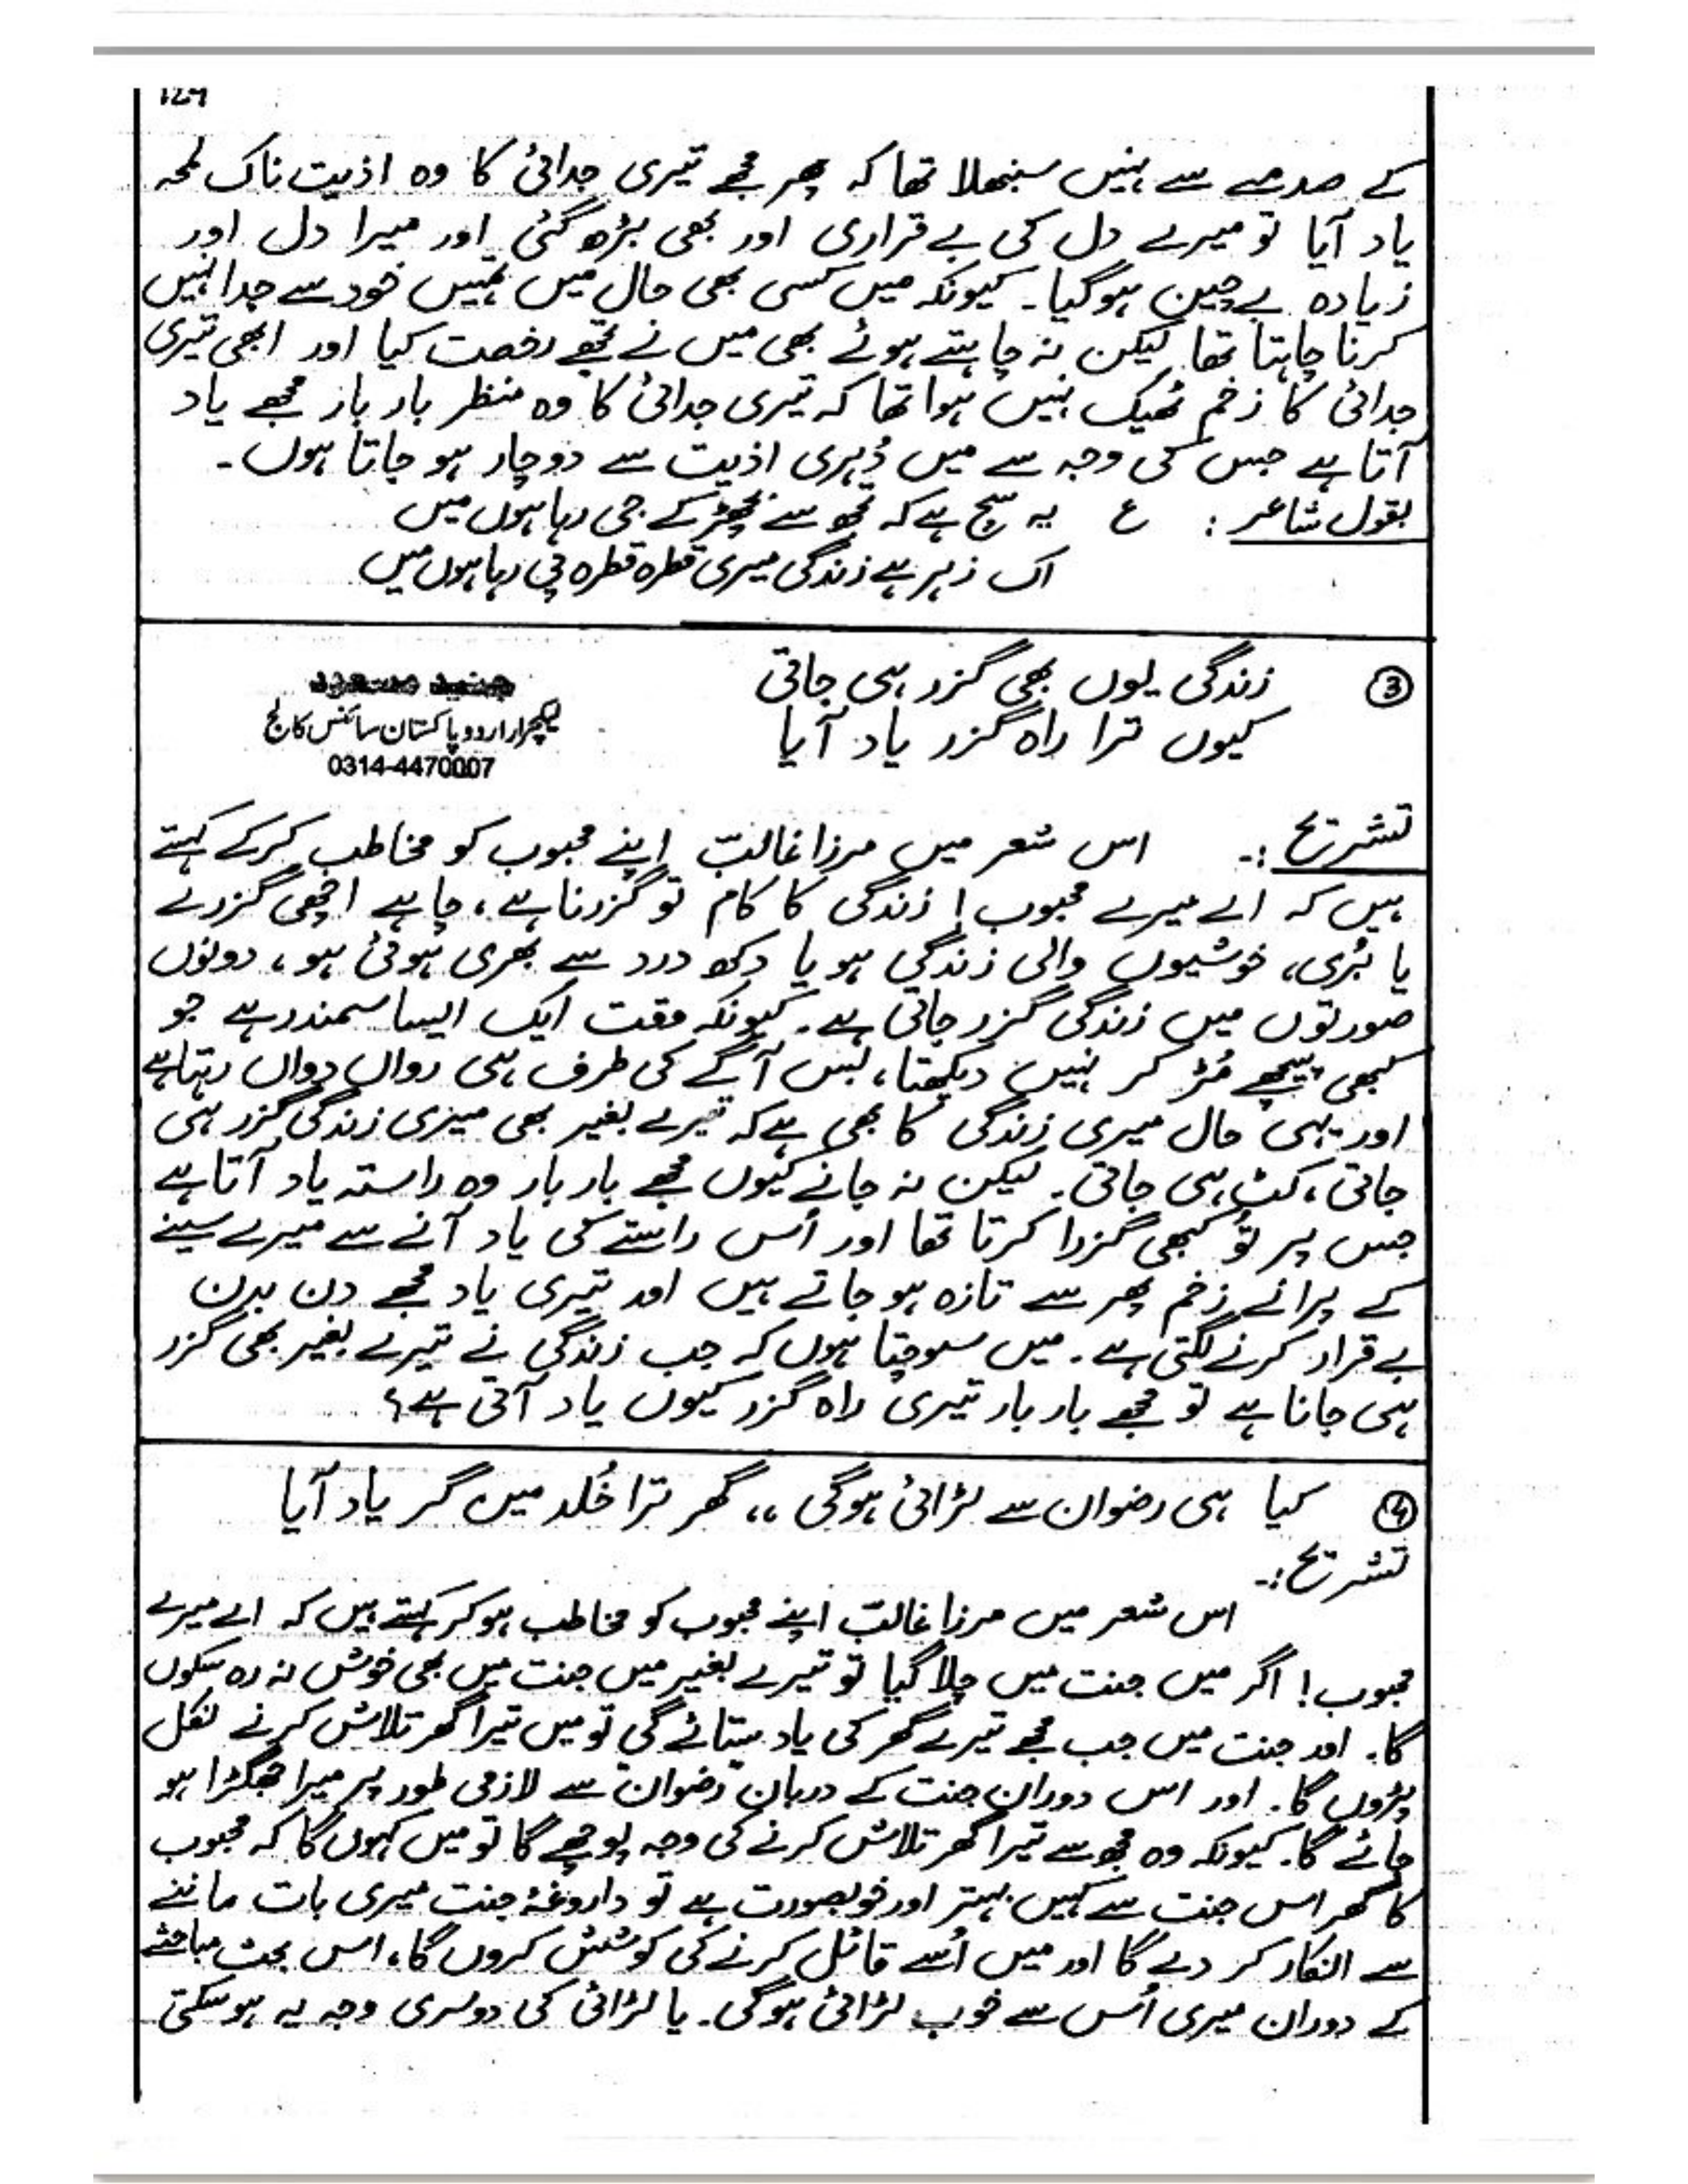 129
کے صدمے سے نہیں سنبھلا تھا کہ پھر مجھے تیری جدائی کا وہ اذیت ناک لمحہ
یاد آیا تو میرے دل کی بے قراری اور بھی بڑھ گئی اور میرا دل اور
زیادہ بے چین ہوگیا۔ کیونکہ میں کسی بھی حال میں تمہیں خود سے جدا نہیں
کرنا چاہتا تھا لیکن نہ چاہتے ہوئے بھی میں نے تجھے رخصت کیا اور ابھی تیری
جدائی کا زخم ٹھیک نہیں ہوا تھا کہ تیری جدائی کا وہ منظر بار بار مجھے یاد
آتا ہے جس کی وجہ سے میں دُہری اذیت سے دوچار ہو جاتا ہوں۔
بقول شاعر : ع یہ سچ ہے کہ تجھ سے بچھڑ کے جی رہا ہوں میں
اک زہر ہے زندگی میری قطرہ قطرہ پی رہا ہوں میں
③ زندگی یوں بھی گزر ہی جاتی
کیوں ترا راہ گزر یاد آیا
جنید مسعود
لیکچرار اردو پاکستان سائنس کالج
0314-4470007
تشریح :۔ اس شعر میں مرزا غالبؔ اپنے محبوب کو مخاطب کرکے کہتے
ہیں کہ اے میرے محبوب! زندگی کا کام تو گزرنا ہے، چاہے اچھی گزرے
یا بُری، خوشیوں والی زندگی ہو یا دکھ درد سے بھری ہوئی ہو، دونوں
صورتوں میں زندگی گزر جاتی ہے۔ کیونکہ وقت ایک ایسا سمندر ہے جو
کبھی پیچھے مُڑ کر نہیں دیکھتا، بس آگے کی طرف ہی رواں دواں رہتا ہے
اور یہی حال میری زندگی کا بھی ہے کہ تیرے بغیر بھی میری زندگی گزر ہی
جاتی، کٹ ہی جاتی۔ لیکن نہ جانے کیوں مجھے بار بار وہ راستہ یاد آتا ہے
جس پر تُو کبھی گزرا کرتا تھا اور اُس راستے کی یاد آنے سے میرے سینے
کے پرانے زخم پھر سے تازہ ہو جاتے ہیں اور تیری یاد مجھے دن بدن
بے قرار کرنے لگتی ہے۔ میں سوچتا ہوں کہ جب زندگی نے تیرے بغیر بھی گزر
ہی جانا ہے تو مجھے بار بار تیری راہ گزر کیوں یاد آتی ہے؟
④ کیا ہی رضوان سے لڑائی ہوگی ،، گھر ترا خُلد میں گر یاد آیا
تشریح :۔
اس شعر میں مرزا غالبؔ اپنے محبوب کو مخاطب ہوکر کہتے ہیں کہ اے میرے
محبوب! اگر میں جنت میں چلا گیا تو تیرے بغیر میں جنت میں بھی خوش نہ رہ سکوں
گا۔ اور جنت میں جب مجھے تیرے گھر کی یاد ستائے گی تو میں تیرا گھر تلاش کرنے نکل
پڑوں گا۔ اور اس دوران جنت کے دربان "رضوان" سے لازمی طور پر میرا جھگڑا ہو
جائے گا۔ کیونکہ وہ مجھ سے تیرا گھر تلاش کرنے کی وجہ پوچھے گا تو میں کہوں گا کہ محبوب
کا گھر اس جنت سے کہیں بہتر اور خوبصورت ہے تو داروغۂ جنت میری بات ماننے
سے انکار کر دے گا اور میں اُسے قائل کرنے کی کوشش کروں گا، اس بحث مباحثے
کے دوران میری اُس سے خوب لڑائی ہوگی۔ یا لڑائی کی دوسری وجہ یہ ہوسکتی